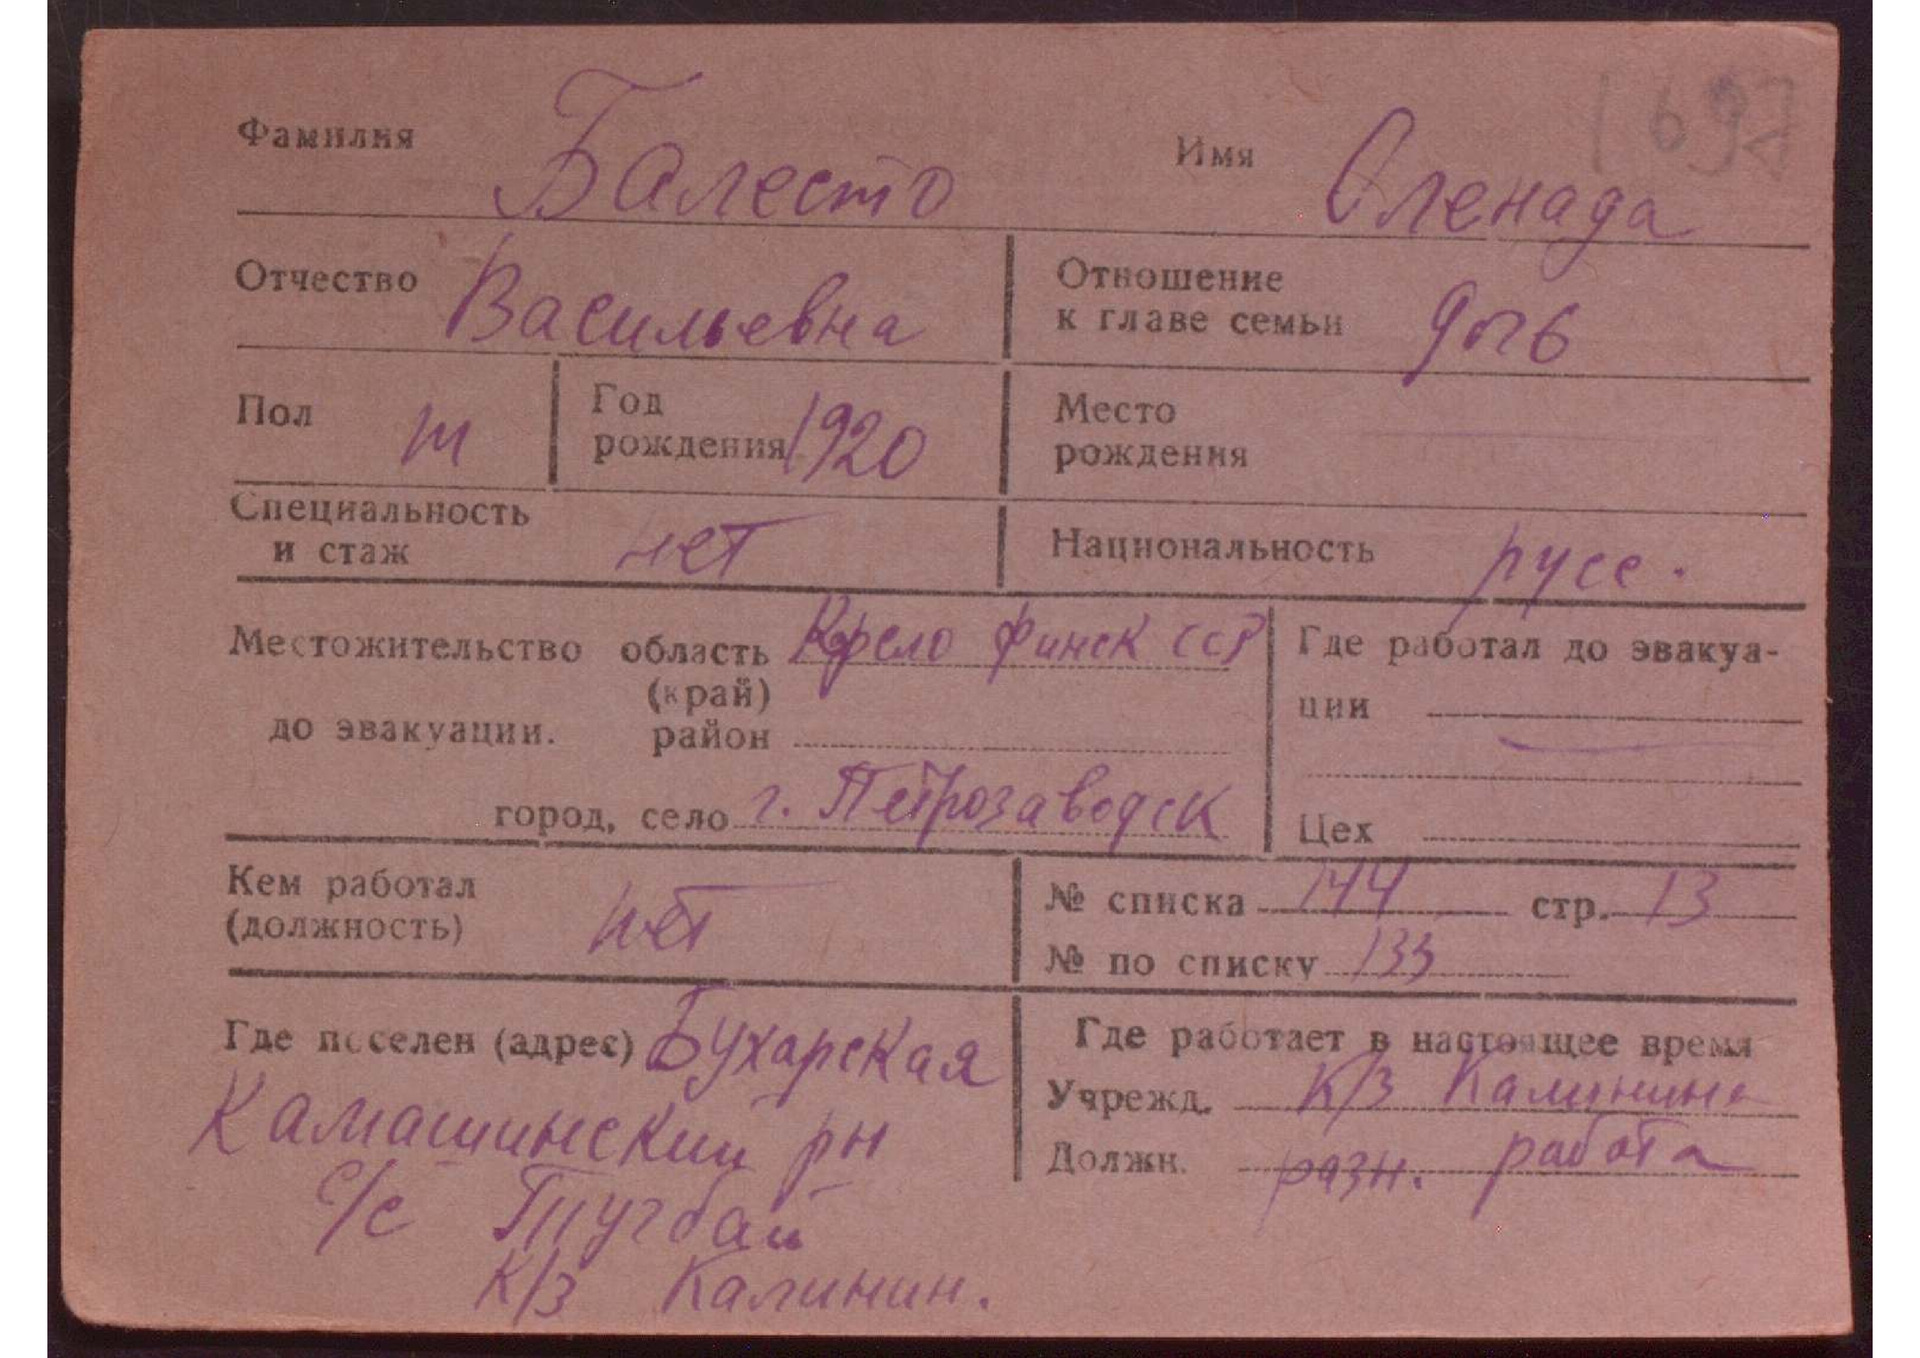 1697
Фамилия Балесто Имя Оленада
Отчество Васильевна Отношение
к главе семьи дочь
Пол Год
рождения 1920 Место
рождения
Специальность
и стаж нет Национальность русс.
Местожительство область Карело финск ССР
(край)
до эвакуации. район
город, село г. Петрозаводск
Где работал до эвакуа-
ции
Цех
Кем работал
(должность) нет
№ списка 144 стр. 13
№ по списку 133
Где поселен (адрес) Бухарская
Камашинский рн
с/с Тугбай
к/з Калинин.
Где работает в настоящее время
Учрежд. к/з Калинина
Должн. разн. работа